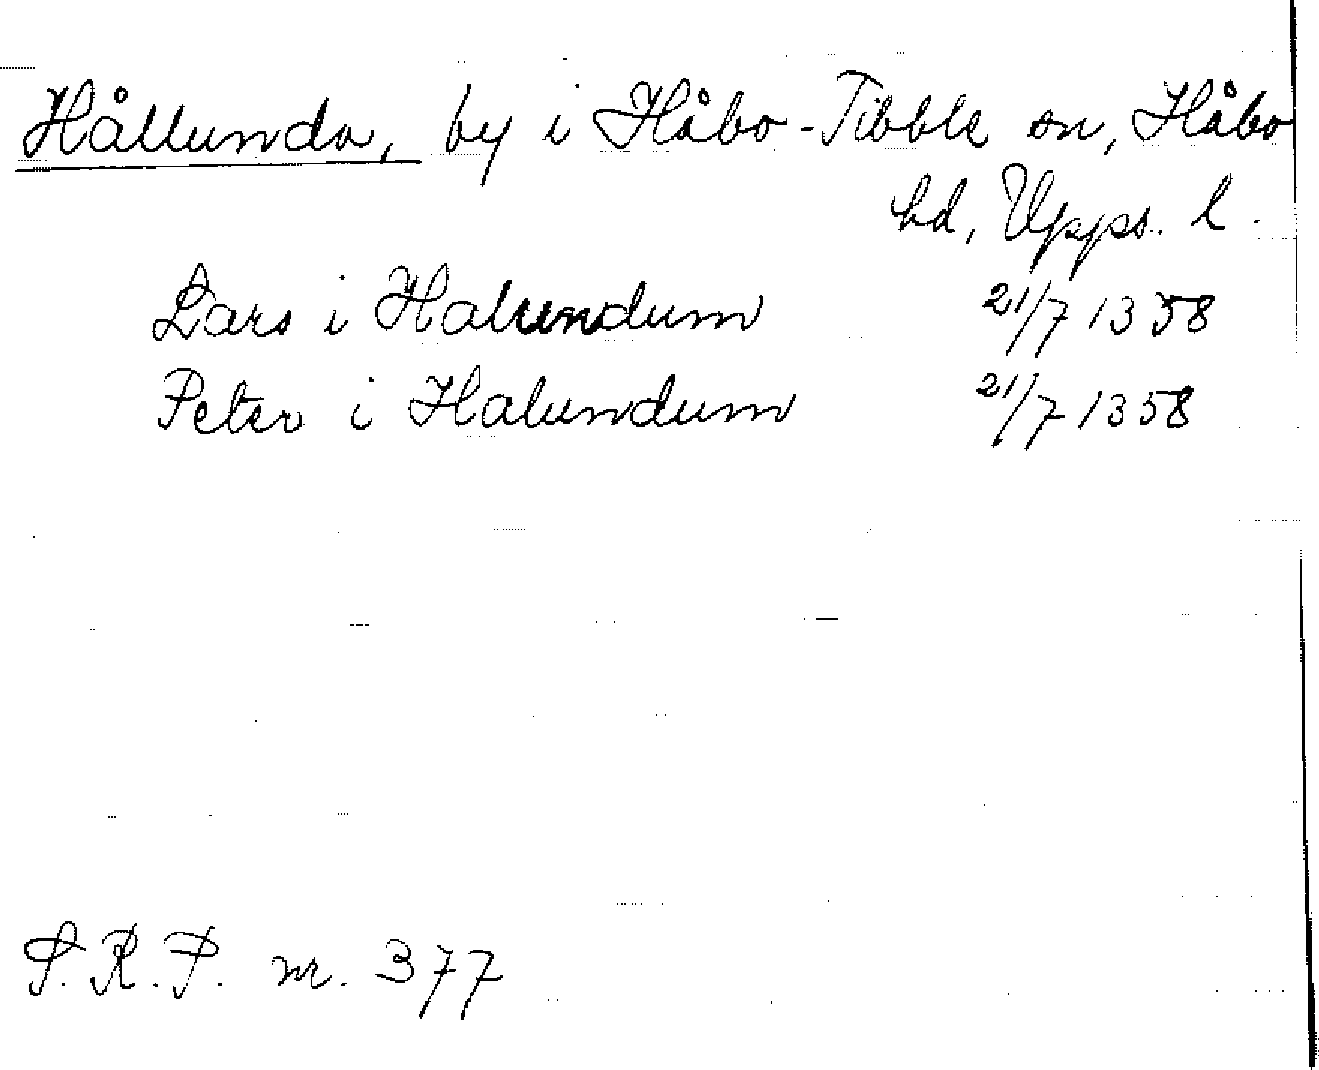 Hållunda, by i Håbo-Tibble sn, Håbo
hd, Upps. l.
Lars i Halundum 21/7 1358
Peter i Halundum 21/7 1358
S.R.P. nr. 377